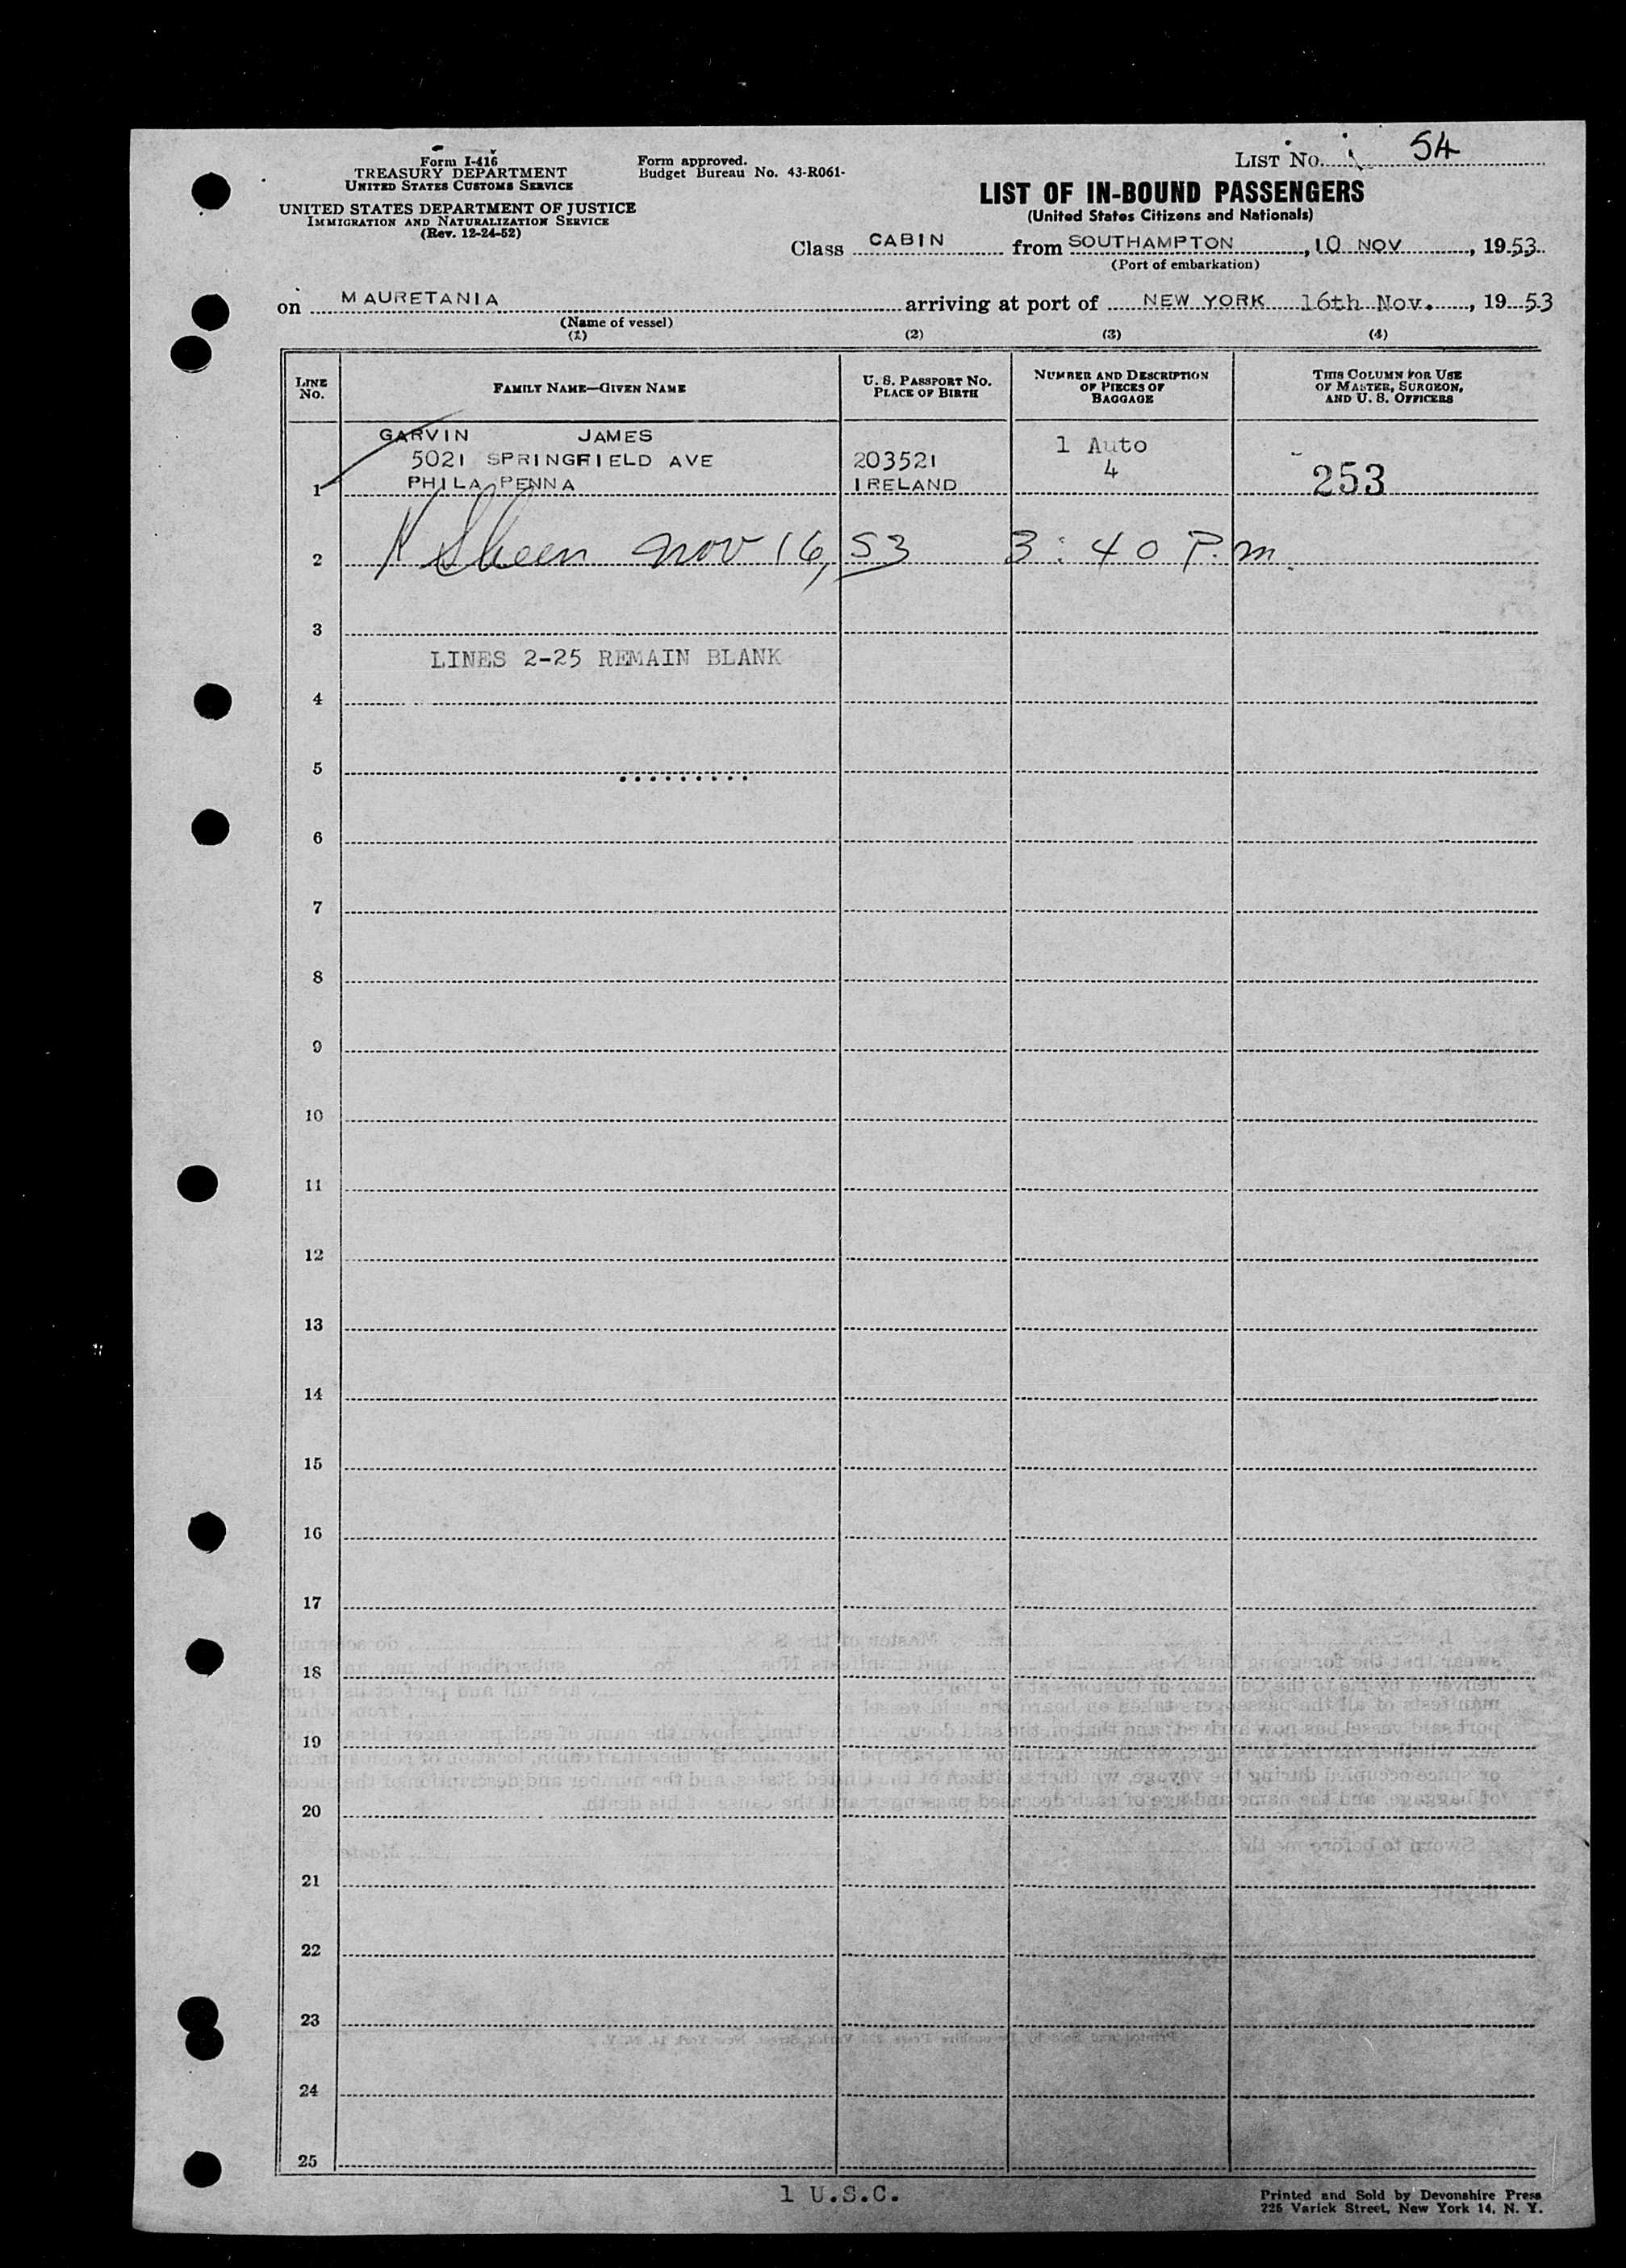 Form I-416
TREASURY DEPARTMENT
UNITED STATES CUSTOMS SERVICE
UNITED STATES DEPARTMENT OF JUSTICE
IMMIGRATION AND NATURALIZATION SERVICE
(Rev. 12-24-52)
Form approved.
Budget Bureau No. 43-R061-
LIST NO. 54
LIST OF IN-BOUND PASSENGERS
(United States Citizens and Nationals)
Class CABIN from SOUTHAMPTON, 10 NOV, 1953
(Port of embarkation)
on MAURETANIA arriving at port of NEW YORK 16th Nov., 1953
(Name of vessel)
(1) (2) (3) (4)
LINE NO.
FAMILY NAME—GIVEN NAME
U. S. PASSPORT NO.
PLACE OF BIRTH
NUMBER AND DESCRIPTION
OF PIECES OF
BAGGAGE
THIS COLUMN FOR USE
OF MASTER, SURGEON,
AND U. S. OFFICERS
GARVIN JAMES 1 Auto
5021 SPRINGFIELD AVE 203521 4 253
1 PHILA PENNA IRELAND
2 Nov 16, 53 3:40 P.m.
3
LINES 2-25 REMAIN BLANK
4
5
6
7
8
9
10
11
12
13
14
15
16
17
18
19
20
21
22
23
24
25
1 U.S.C.
Printed and Sold by Devonshire Press
225 Varick Street, New York 14, N. Y.